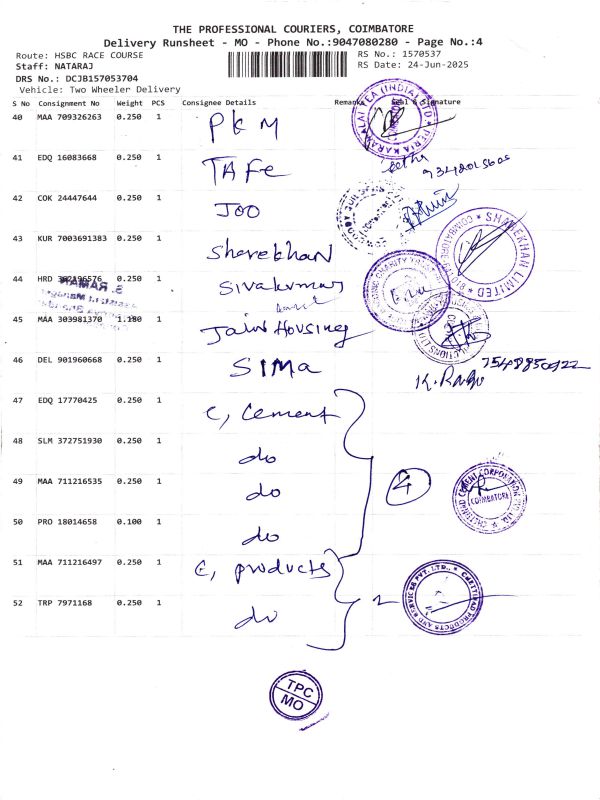 THE PROFESSIONAL COURIERS, COIMBATORE
Delivery Runsheet - MO - Phone No.:9047080280 - Page No.:4
Route: HSBC RACE COURSE RS No.: 1570537
Staff: NATARAJ RS Date: 24-Jun-2025
DRS No.: DCJB157053704
Vehicle: Two Wheeler Delivery
S No Consignment No Weight PCS Consignee Details Remarks Seal & Signature
40 MAA 709326263 0.250 1 PKM
41 EDQ 16083668 0.250 1 TAFe
42 COK 24447644 0.250 1 JOO
43 KUR 7003691383 0.250 1 Sharekhan
SHAREKHAN LIMITED
44 HRD 0.250 1 Sivakumar
45 MAA 303981370 1.180 1 Jain Housing
46 DEL 901960668 0.250 1 SIMA
K. Raju
47 EDQ 17770425 0.250 1 C, Cement
48 SLM 372751930 0.250 1 do
49 MAA 711216535 0.250 1 do
4
CHETTINAD CEMENT CORPORATION
COIMBATORE
50 PRO 18014658 0.100 1 do
51 MAA 711216497 0.250 1 C, products
52 TRP 7971168 0.250 1 do
2
CHETTINAD PRODUCTS AND SERVICES PVT. LTD.
TPC
MO